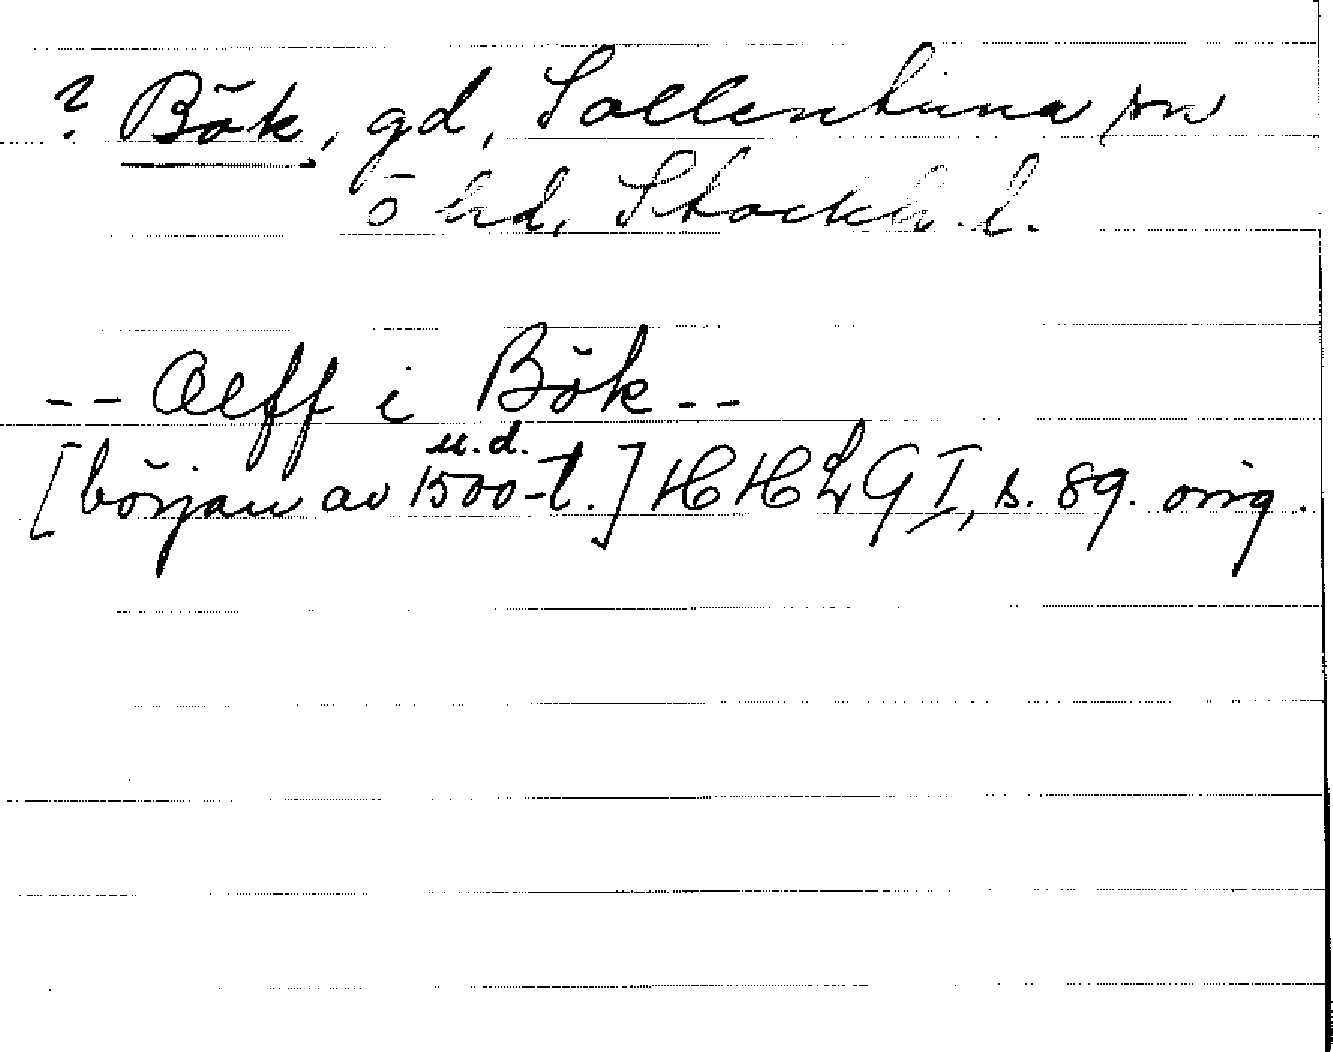 ? Bök, gd, Sollentuna sn
ö hd, Stockh. l.
-- Oleff i Bök --
u.d.
[början av 1500-t.] HHLG I, s. 89. orig.